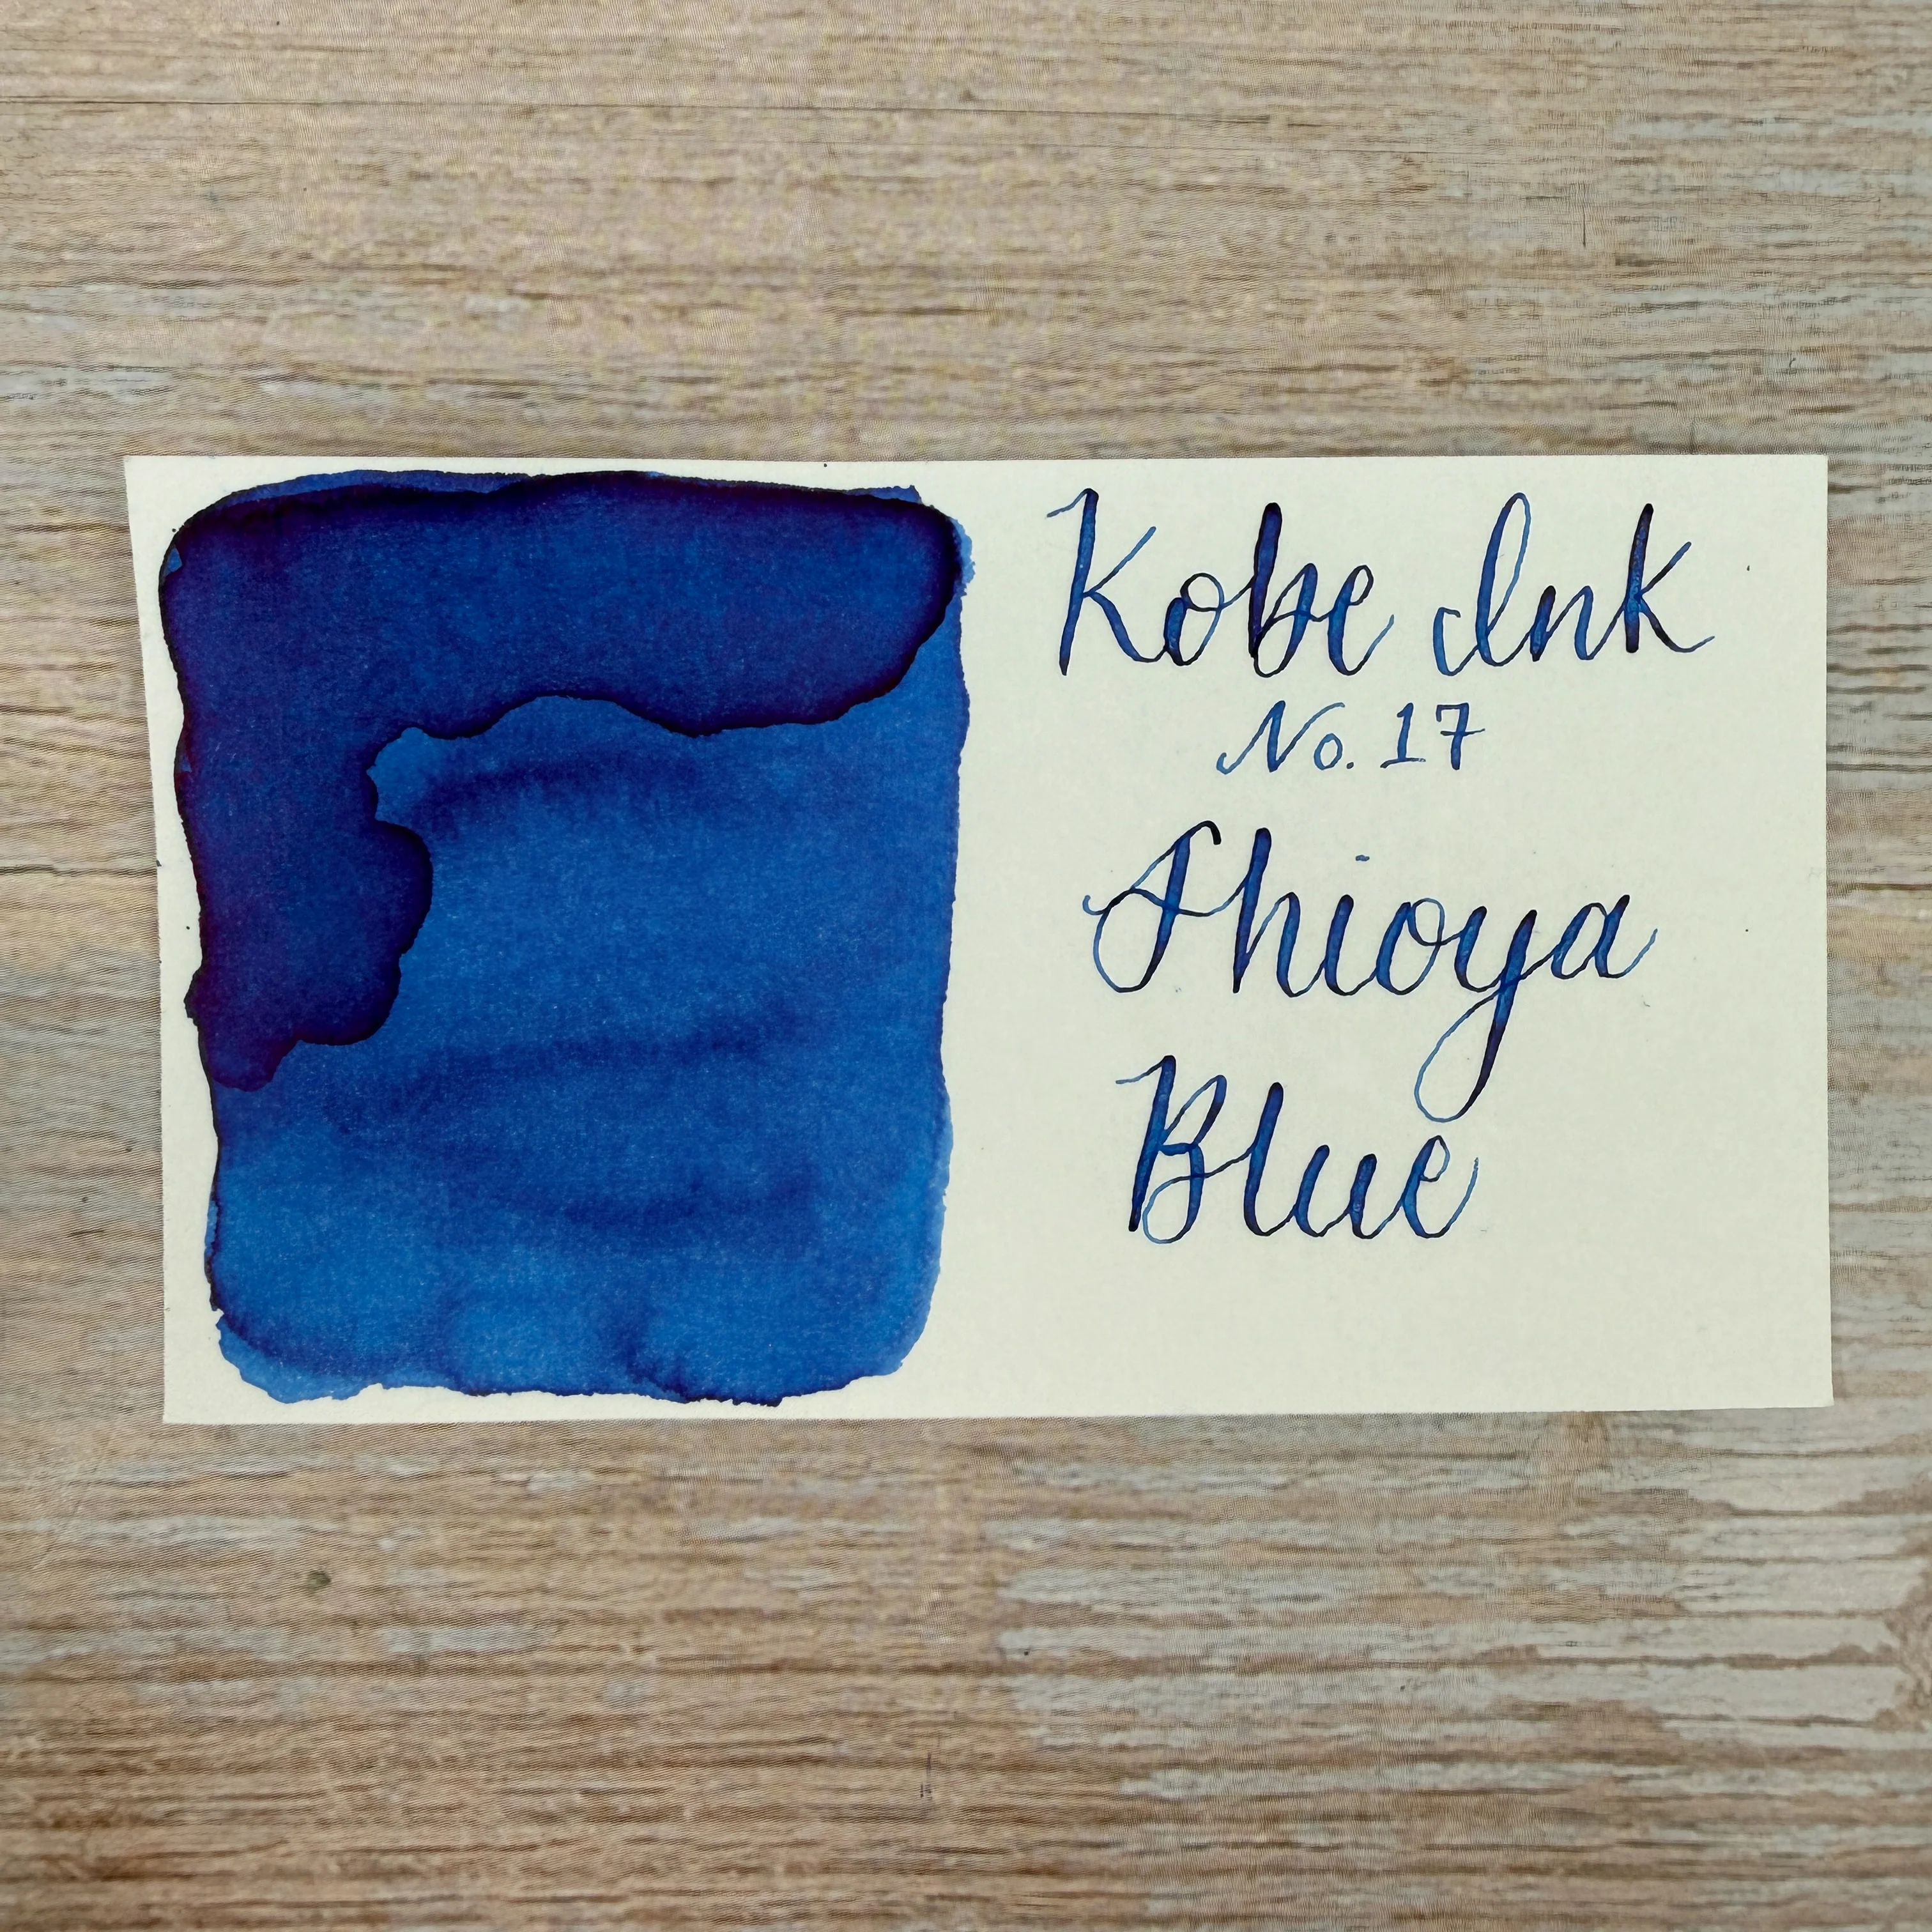 Kobe Ink
No. 17
Shioya
Blue